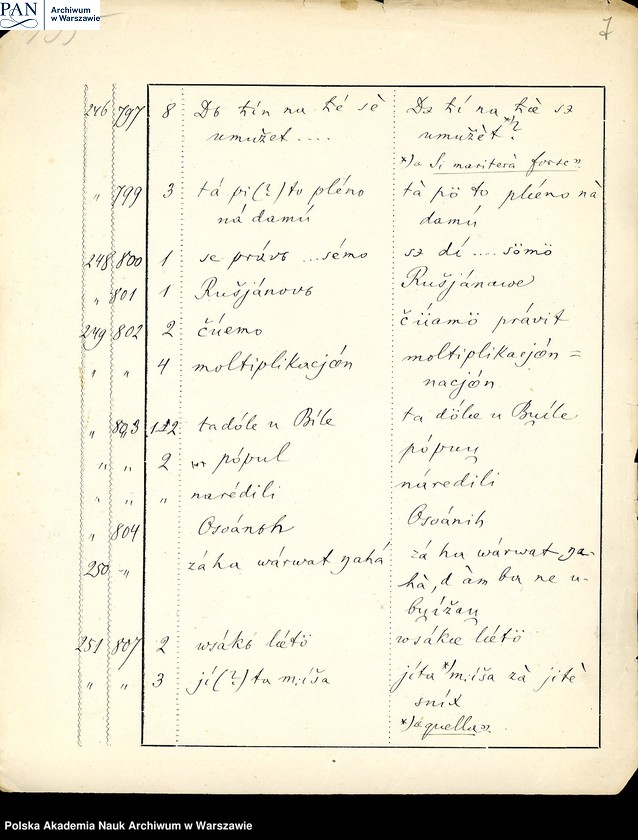 PAN Archiwum w Warszawie
7
246 797 8 Dъ kín na ké sè Dz kí na kæ sz
umužet .... umužèt *)?
*) „Si mariterà forse".
„ 799 3 tá pi(?) to pléno tà pö to pliéno nà
ná damú damú
248 800 1 se právъ ... sémo sz dí .... sömö
„ 801 1 Rušjánovъ Rušjánawe
249 802 2 čúemo čüamö právit
„ „ 4 moltiplikacjón moltiplikacjón =
nacjón
„ 803 1±2 tadóle u Bíle ta döle u Byíle
„ „ 2 pópul pópuy
„ „ „ narédili náredili
„ 804 Osoánъh Osoánih
250 „ zá hu wárwat nahá zá hu wárwat na-
hà, d àm ba ne u-
byížay
251 807 2 wsákъ liétö wsákæ liétö
„ „ 3 jí(?) ta míša jíta *) míša zà jitè
sníx
*) „quella".
Polska Akademia Nauk Archiwum w Warszawie